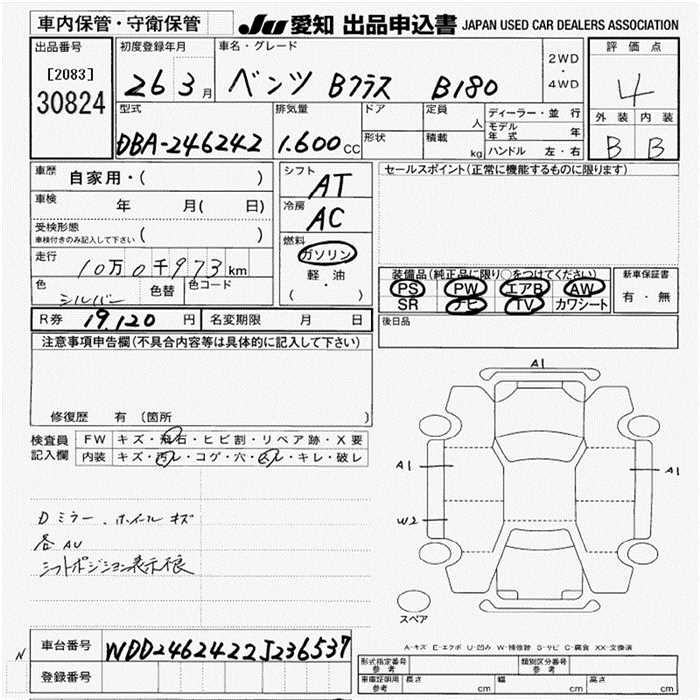 車内保管・守衛保管
JU 愛知 出品申込書 JAPAN USED CAR DEALERS ASSOCIATION
出品番号 初度登録年月 車名・グレード 2WD・4WD 評価点
[2083]
30824 26 3月 ベンツ Bクラス B180 4
型式 排気量 ドア 定員 人 ディーラー・並行 外装 内装
DBA-246242 1.600cc 形状 積載 kg モデル年式 年 B B
ハンドル 左・右
車歴 自家用・( ) シフト AT セールスポイント(正常に機能するものに限ります)
車検 年 月( 日) 冷房 AC
受検形態
車検付きのみ記入して下さい ( ) 燃料
走行 10万0千973km ガソリン 装備品(純正品に限り○をつけてください) 新車保証書
色 シルバー 色替 色コード 軽油 PS PW エアB AW 有・無
(・) SR ナビ TV カワシート
R券 19,120円 名変期限 月 日 後日品
注意事項申告欄(不具合内容等は具体的に記入して下さい)
修復歴 有(箇所 )
検査員 FW キズ・飛石・ヒビ割・リペア跡・X要
記入欄 内装 キズ・汚レ・コゲ・穴・スレ・キレ・破レ
A1
A1
A1
W2
Dミラー、ホイールキズ
各AU
シフトポジション表示不良
スペア
車台番号 WDD2462422J236537
A-キズ E-エクボ U-凹み W-補修跡 S-サビ C-腐食 XX-交換済
N
登録番号
形式指定番号 参考 類別区分番号 参考
車庫証明用 参考 長さ cm 幅 cm 高さ cm